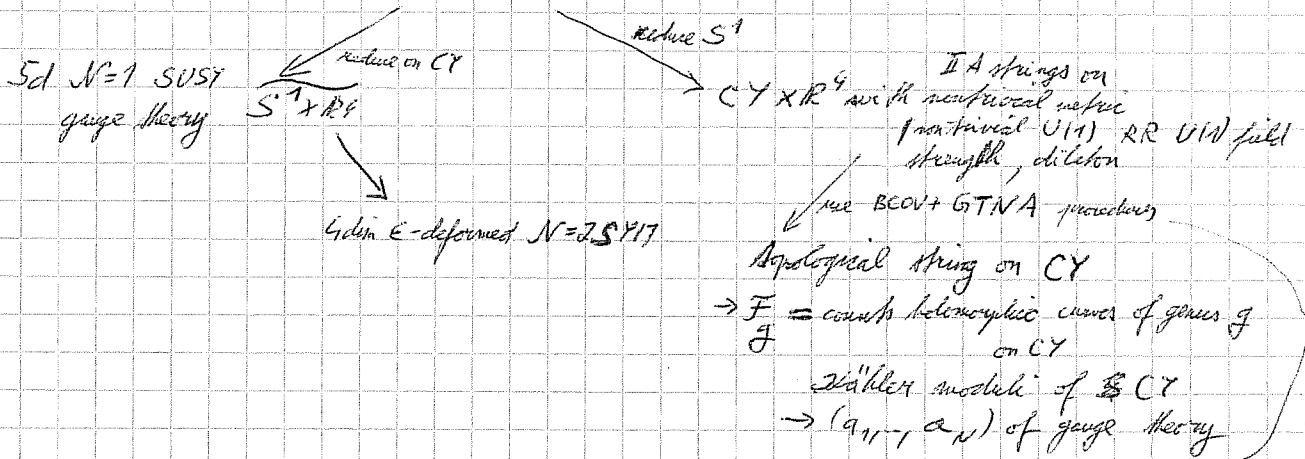 reduce S¹
reduce on CY
5d N=1 SUSY
gauge theory S¹ × ℝ⁴
II A strings on
CY × ℝ⁴ with nontrivial metric
(nontrivial U(1) RR U(1) field
strength, dilaton
use BCOV + GTNA procedures
4dim ε-deformed N=2 SYM
Topological string on CY
→ F_g = counts holomorphic curves of genus g
on CY
Kähler moduli of CY
→ (a₁, …, a_N) of gauge theory